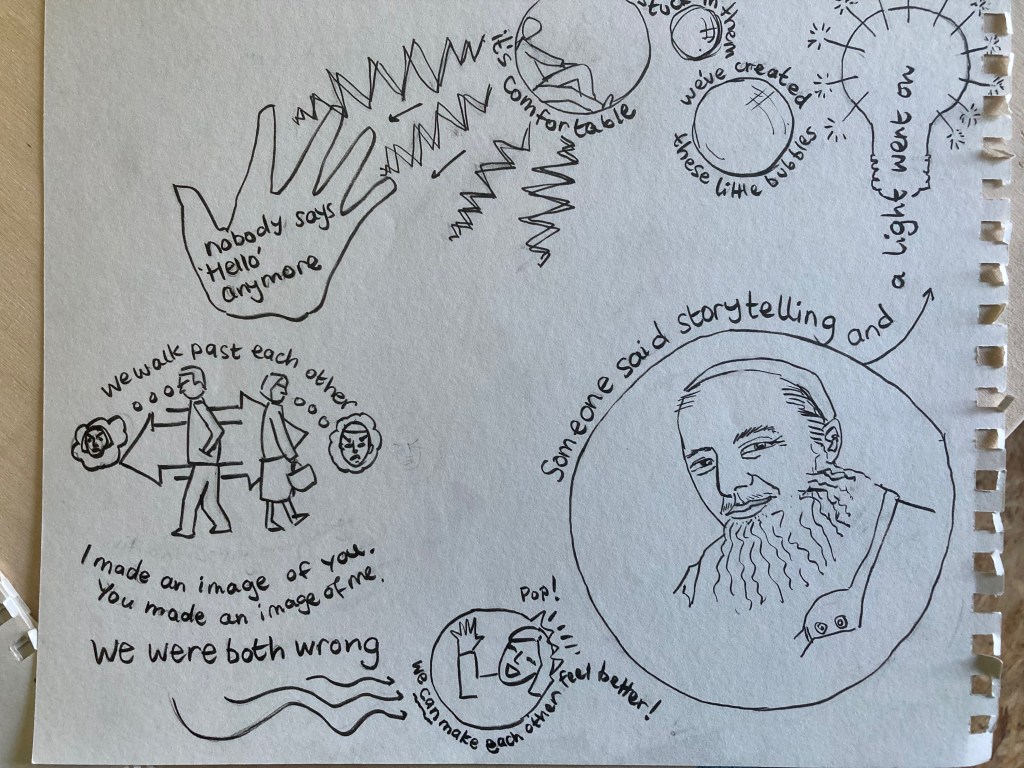 Someone said storytelling and a light went on
we've created
these little bubbles
it's comfortable
nobody says
'Hello'
anymore
we walk past each other
I made an image of you.
You made an image of me.
we were both wrong
Pop!
we can make each other feel better!